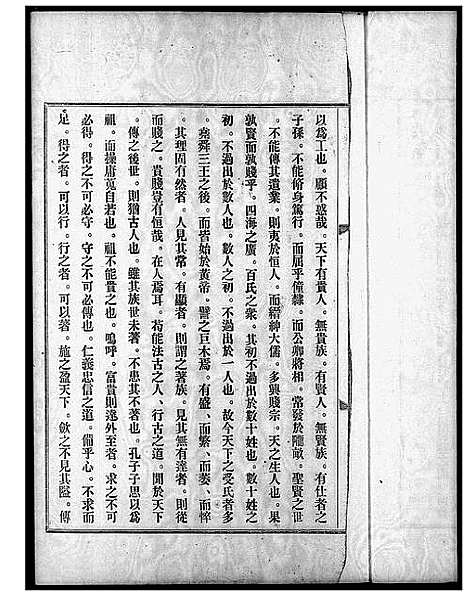 以為工也。顧不惑哉。天下有貴人。無貴族。有賢人。無賢族。有仕者之
子孫。不能脩身篤行。而屈乎僮隸。而公卿將相。常發於隴畝。聖賢之世
。不能傳其遺業。則夷於恒人。而縉紳大儒。多興賤宗。天之生人也。果
孰賢而孰賤乎。四海之廣。百氏之衆。其初不過出於數十姓也。數十姓之
初。不過出於數人也。數人之初。不過出於一人也。故今天下之受氏者多
。堯舜三王之後。而皆始於黃帝。譬之巨木焉。有盛、而繁、而萎、而悴
。其理固有然者。人見其常。有顯者。則謂之著族。見其無有達者。則從
而賤之。貴賤豈有恒哉。在人焉耳。苟能法古之人、行古之道。聞於天下
。傳之後世。則猶古人也。雖其族世未著。不患其不著也。孔子子思以為
祖。而操庸莵自若也。祖不能貴之也。嗚呼。富貴則遂外至者。求之不可
必得。得之不可必守。守之不可必傳也。仁義忠信之道。備乎心。不求而
足。得之者。可以行。行之者。可以著。施之盈天下。斂之不見其隘。傳